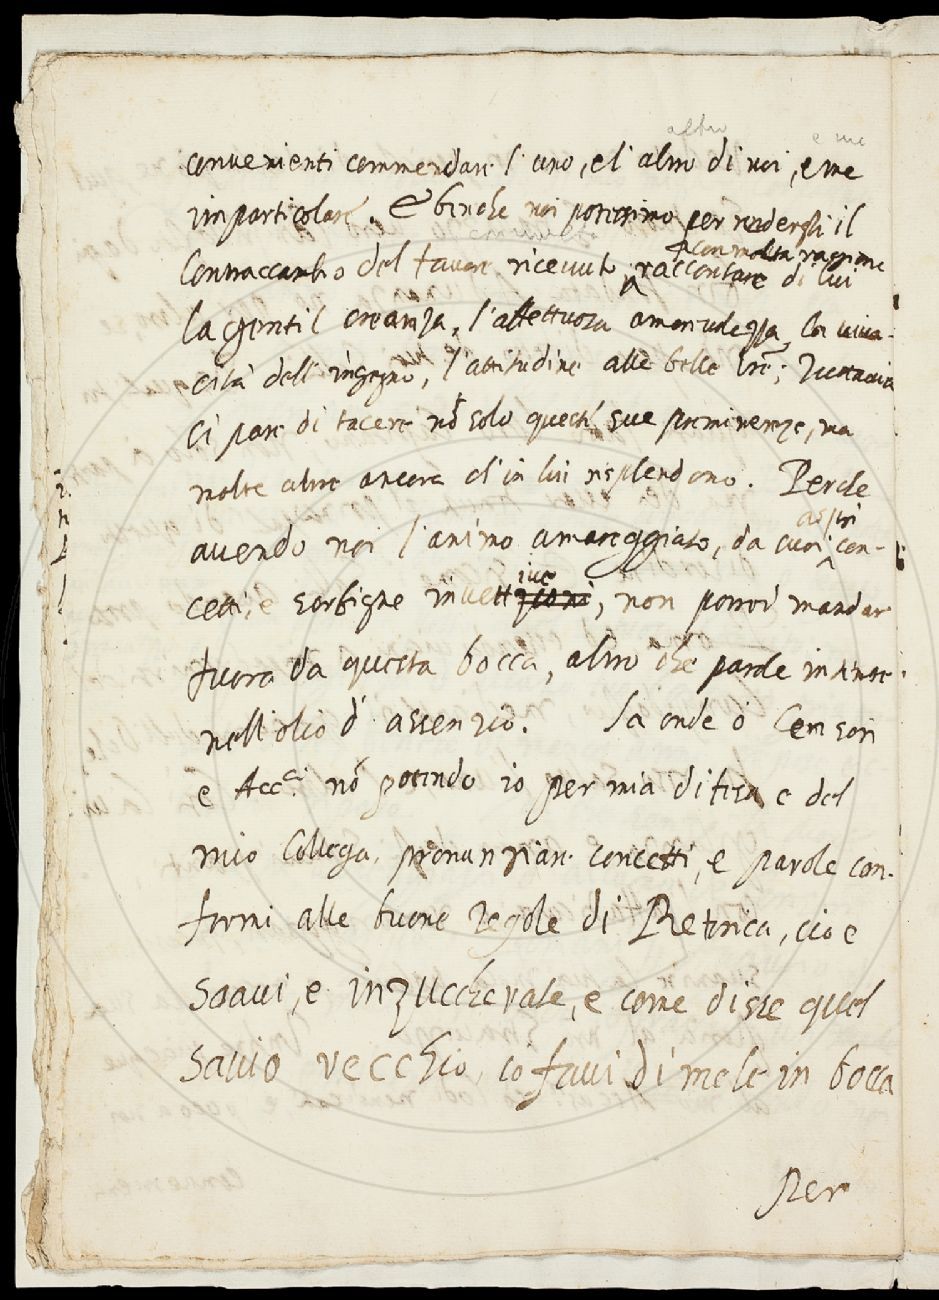 altro e me
conuenienti commendare l'uno, e l'altro di noi, e me
in particolare. E benche noi potessimo per rendergli il
con molta ragione
Contraccambio del fauore riceuuto, raccontare di lui
la gentil creanza, l'affettuosa amoreuolezza, la uiua-
cità dell'ingegno, l'attitudine alle belle lre; Tuttauia
ci pare di tacere nō solo queste sue preminenze, ma
molte altre ancora ch'in lui risplendono. Perche
aspri
auendo noi l'animo amareggiato, da cui con-
iue
cetti, e sorbigne inuettzioni, non possod mandar
fuora da questa bocca, altro che parole intinte
nell'olio d'assenzio. La onde ò Censori
e Acc.ci nō potendo io per mia difesa e del
mio Collega, pronunziare concetti, e parole con-
formi alle buone regole di Retorica, cio e
Soaui, e inzuccherate, e come disse quel
Sauio vecchio, cō faui di mele in bocca
Per